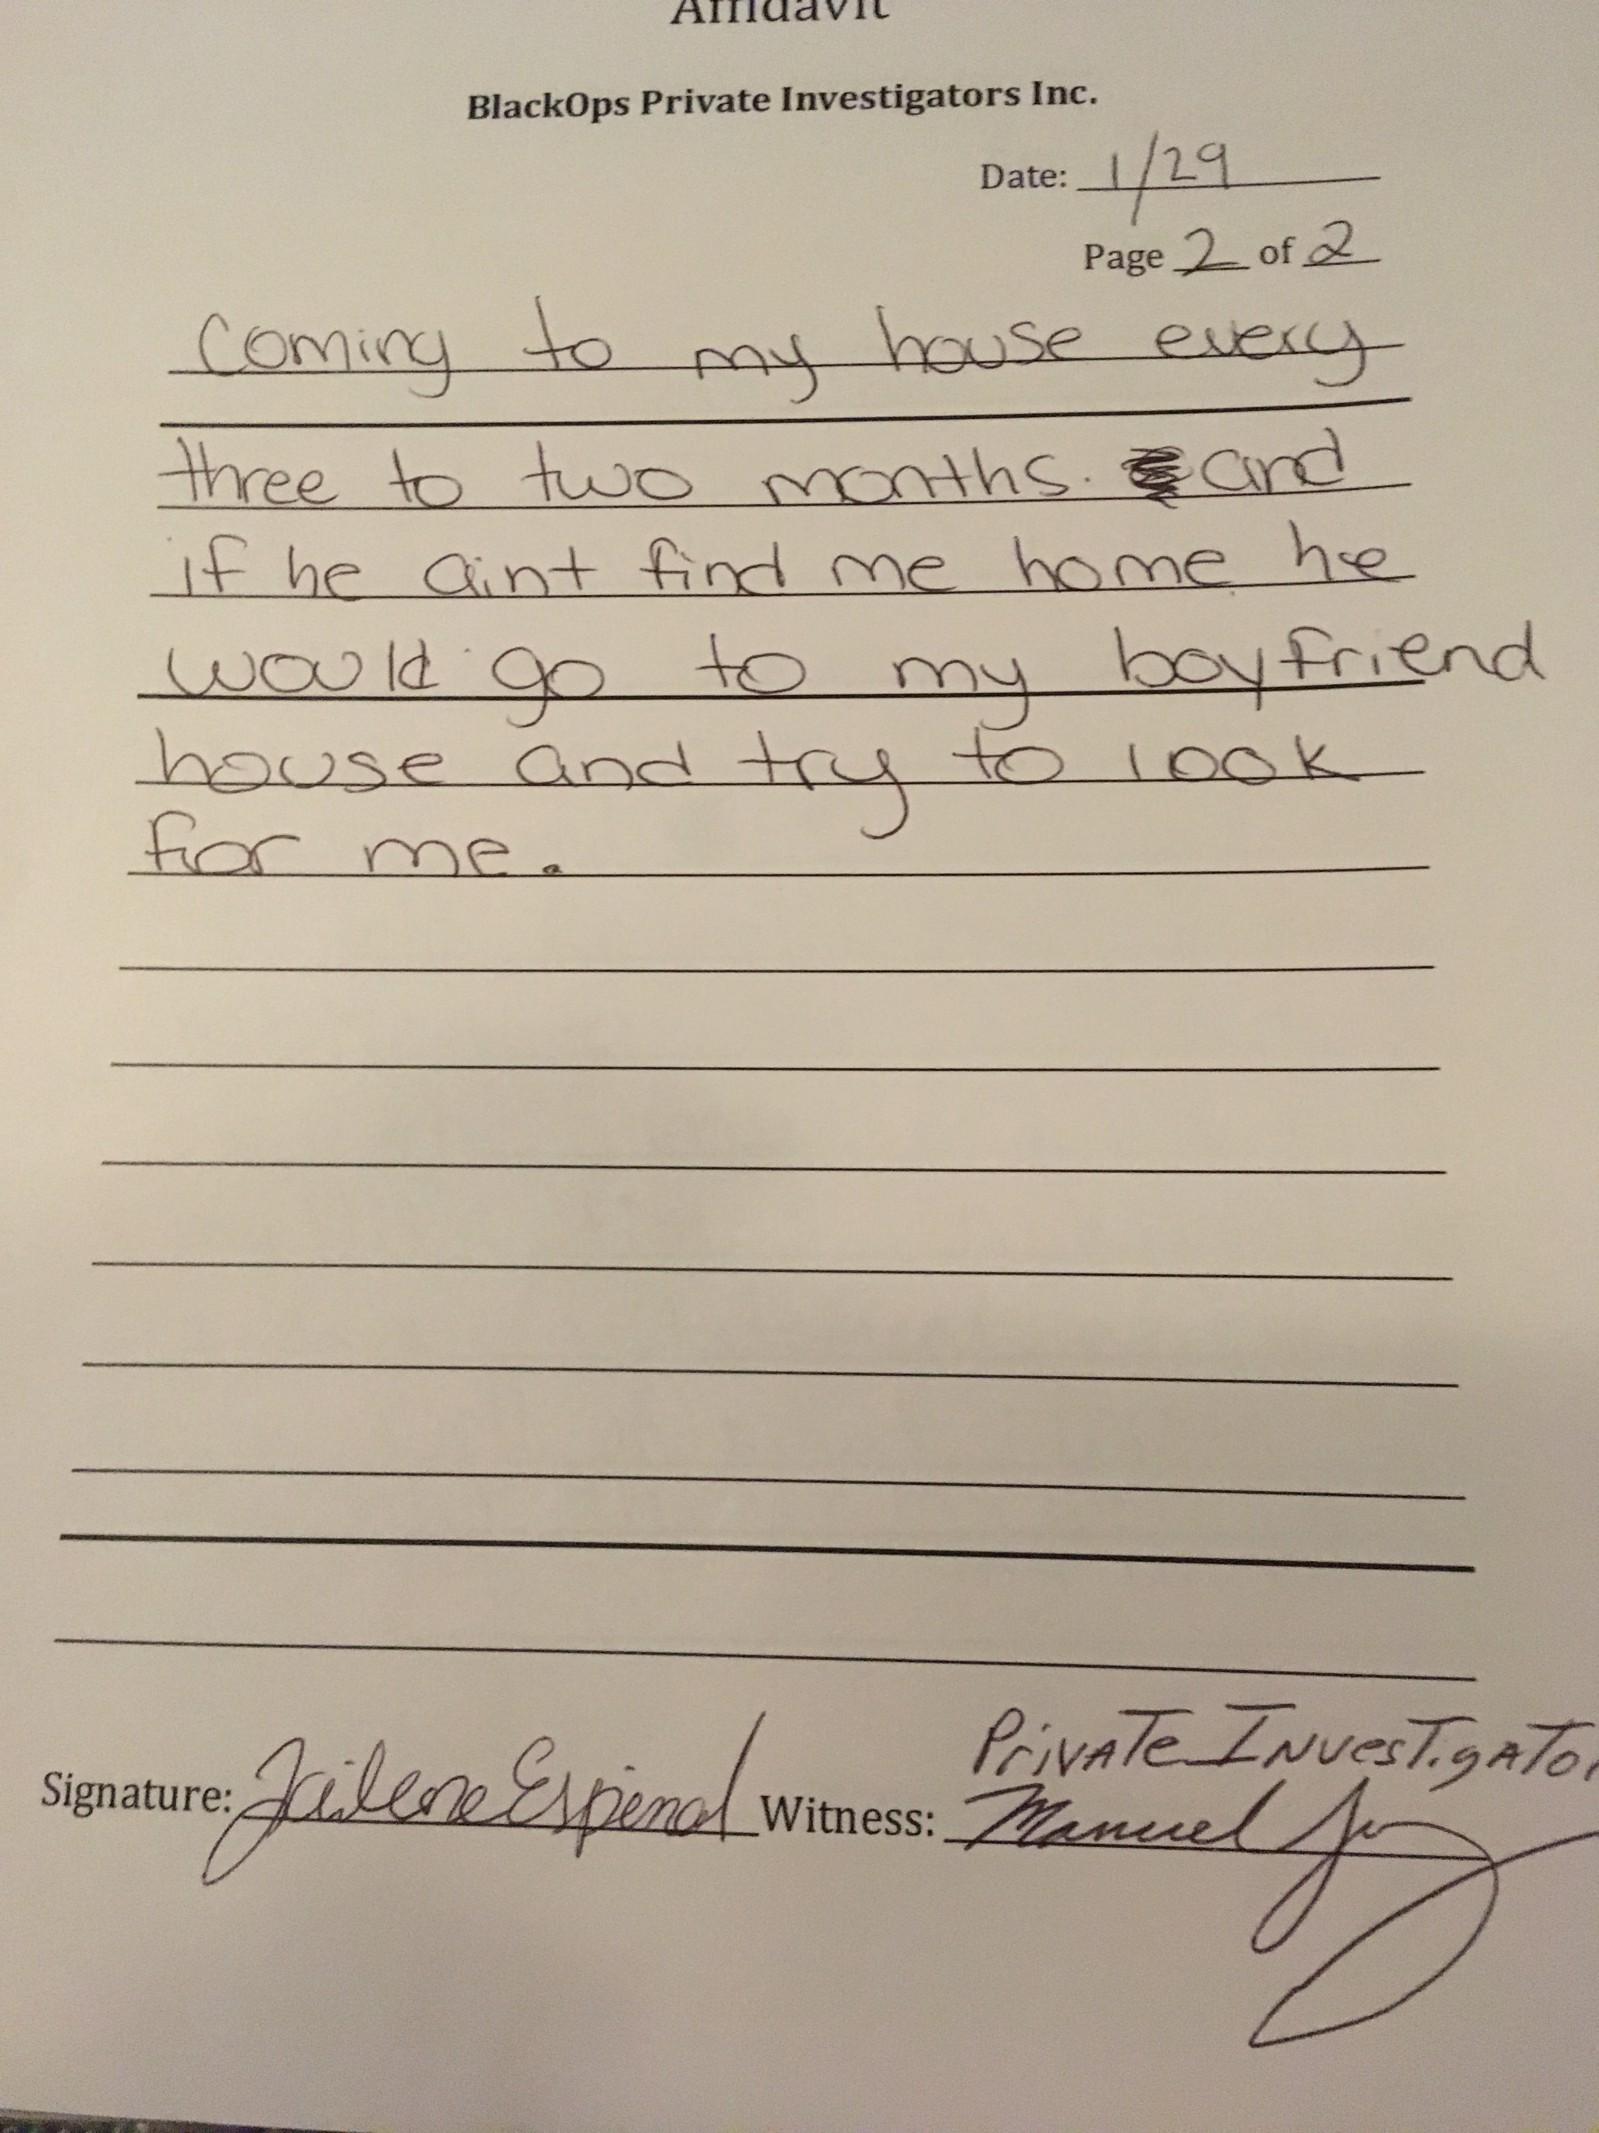 Affidavit
BlackOps Private Investigators Inc.
Date: 1/29
Page 2 of 2
Coming to my house every
three to two months. and
if he aint find me home he
would go to my boyfriend
house and try to look
for me.
Private Investigator
Signature: Jailene Espinal Witness: Manuel